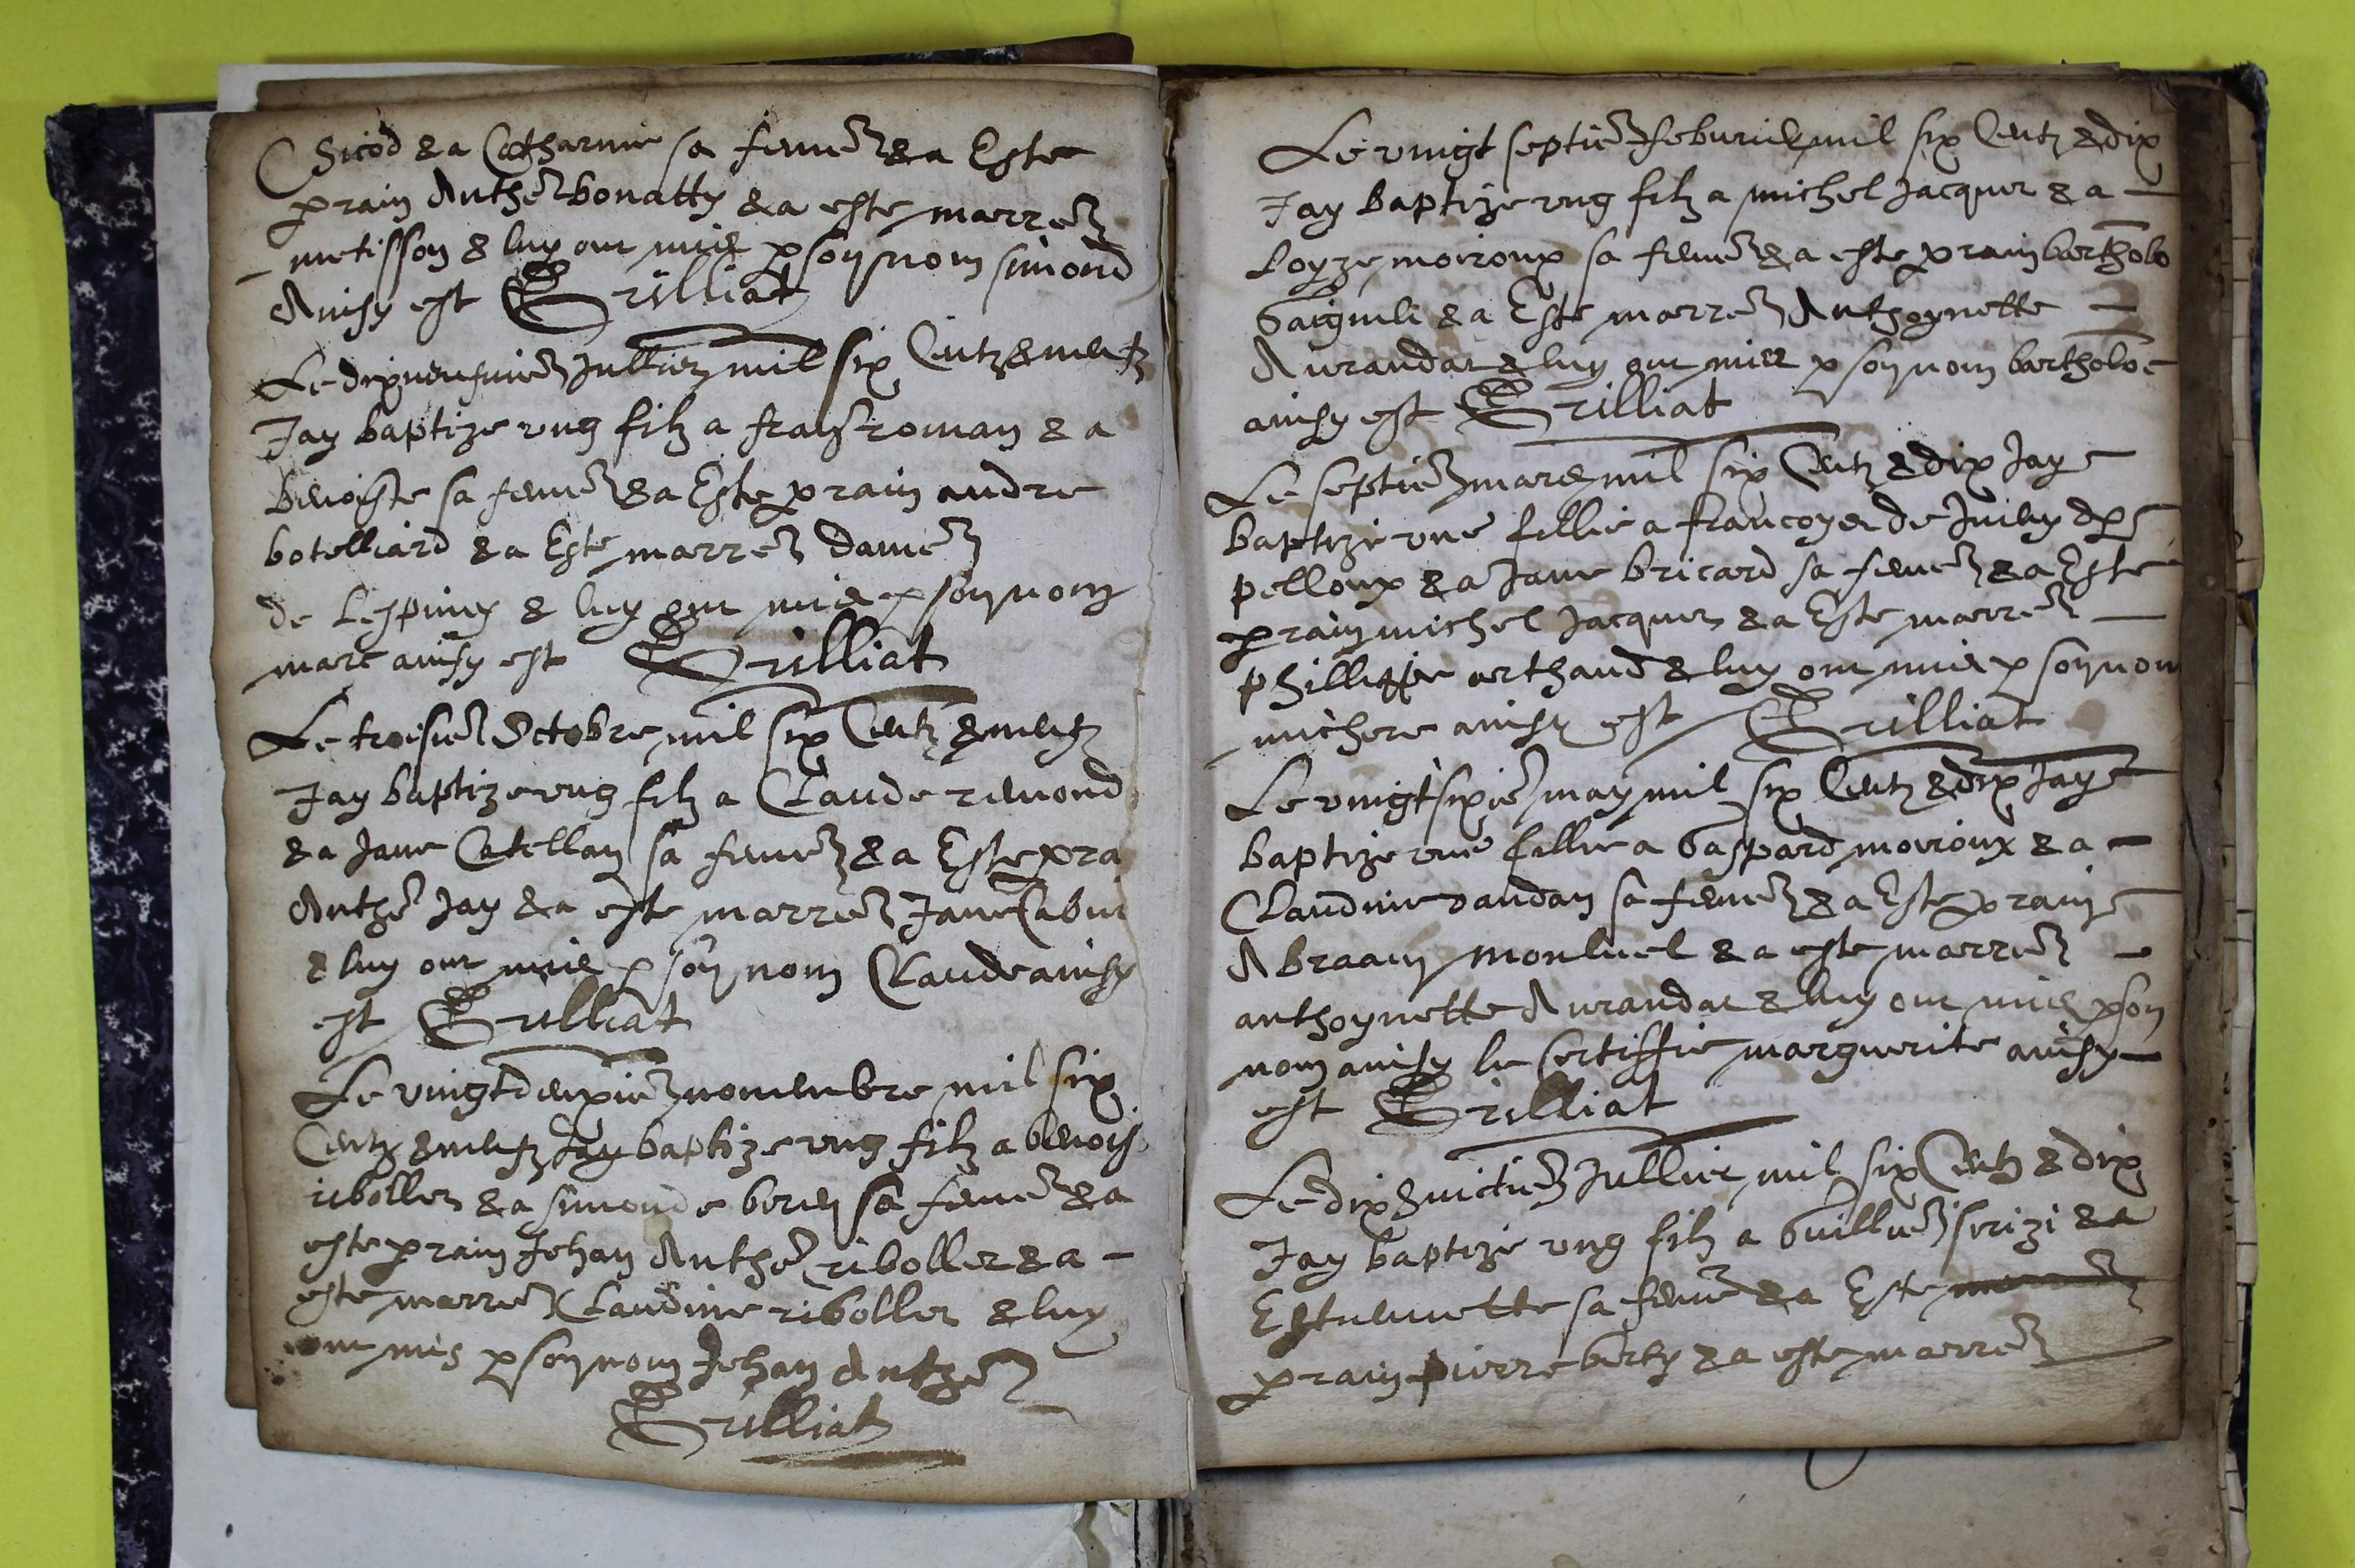 Chicod & a Catharine sa femē & a Este
prain Anthē bonatty & a este marrē
metisson & luy ont mis p son nom simond
Ainsy est Grilliat
Le dixneufviē Jullier mil six Centz & neufz
Jay baptize ung filz a fransr roman & a
benoiste sa femē & a Este prain andre
botelliard & a Este marrē dame
de lespiney & luy ont mis p son nom
marc ainsy est Grilliat
Le troisiē Octobre mil six Centz & neufz
Jay baptize ung filz a Claude remond
& a Jane Catellan sa femē & a Este pra
Anthē Jay & a este marrē Jane
& luy ont mis p son nom Claude ainsy
est Grilliat
Le vingtdeuxiē novembre mil six
Centz & neufz Jay baptize ung filz a benois
riboller & a simonde berey sa femē & a
este prain Jehan Anthē riboller & a
este marrē Claudine riboller & luy
ont mis p son nom Jehan Anthē
Grilliat
Le vingt septiē feburier mil six Centz & dix
Jay baptize ung filz a michel Jacquer & a
Loyze moiroux sa femē & a este prain bartholo
& a Este marrē Anthoynette
Aurandar & luy ont mis p son nom bartholoe
ainsy est Grilliat
Le septiē mars mil six Centz & dix Jay
baptize une fillie a francoys de
pelloux & a Jane bricard sa femē & a Este
prain michel Jacquer & a Este marrē
phillippe arthaud & luy ont mis p son nom
michere ainsy est Grilliat
Le vingtsixiē may mil six Centz & dix Jay
baptize une fillie a Gaspard moiroux & a
Claudine dandan sa femē & a Este prain
Abraam monluel & a este marrē
anthoynette Aurandar & luy ont mis p son
nom ainsy le certiffie marguerite ainsy
est Grilliat
Le dix huictiē Jullier mil six Centz & dix
Jay baptize ung filz a Guillē serizi & a
Estuennette sa femē & a Este
prain pierre berty & a este marrē